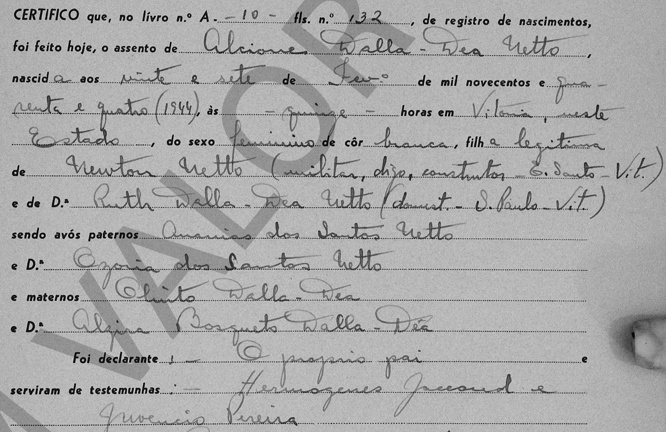 CERTIFICO que, no livro n.º A. -10- fls. n.º 132, de registro de nascimentos,
foi feito hoje, o assento de Alciones Dalla-Dea Netto,
nascida aos vinte e sete de Fev.º de mil novecentos e qua-
renta e quatro (1944), às - quinze - horas em Vitoria, neste
Estado, do sexo feminino de côr branca, filha legitima
de Newton Netto (militar, digo, construtor - E. Santo - Vit.)
e de D.ª Ruth Dalla-Dea Netto (domest. - S. Paulo - Vit.)
sendo avós paternos Ananias dos Santos Netto
e D.ª Ozoria dos Santos Netto
e maternos Olinto Dalla-Dea
e D.ª Alzira Bosqueto Dalla-Déa
Foi declarante : - O proprio pai e
serviram de testemunhas : - Hermogenes e
Juvencio Pereira
VALOR